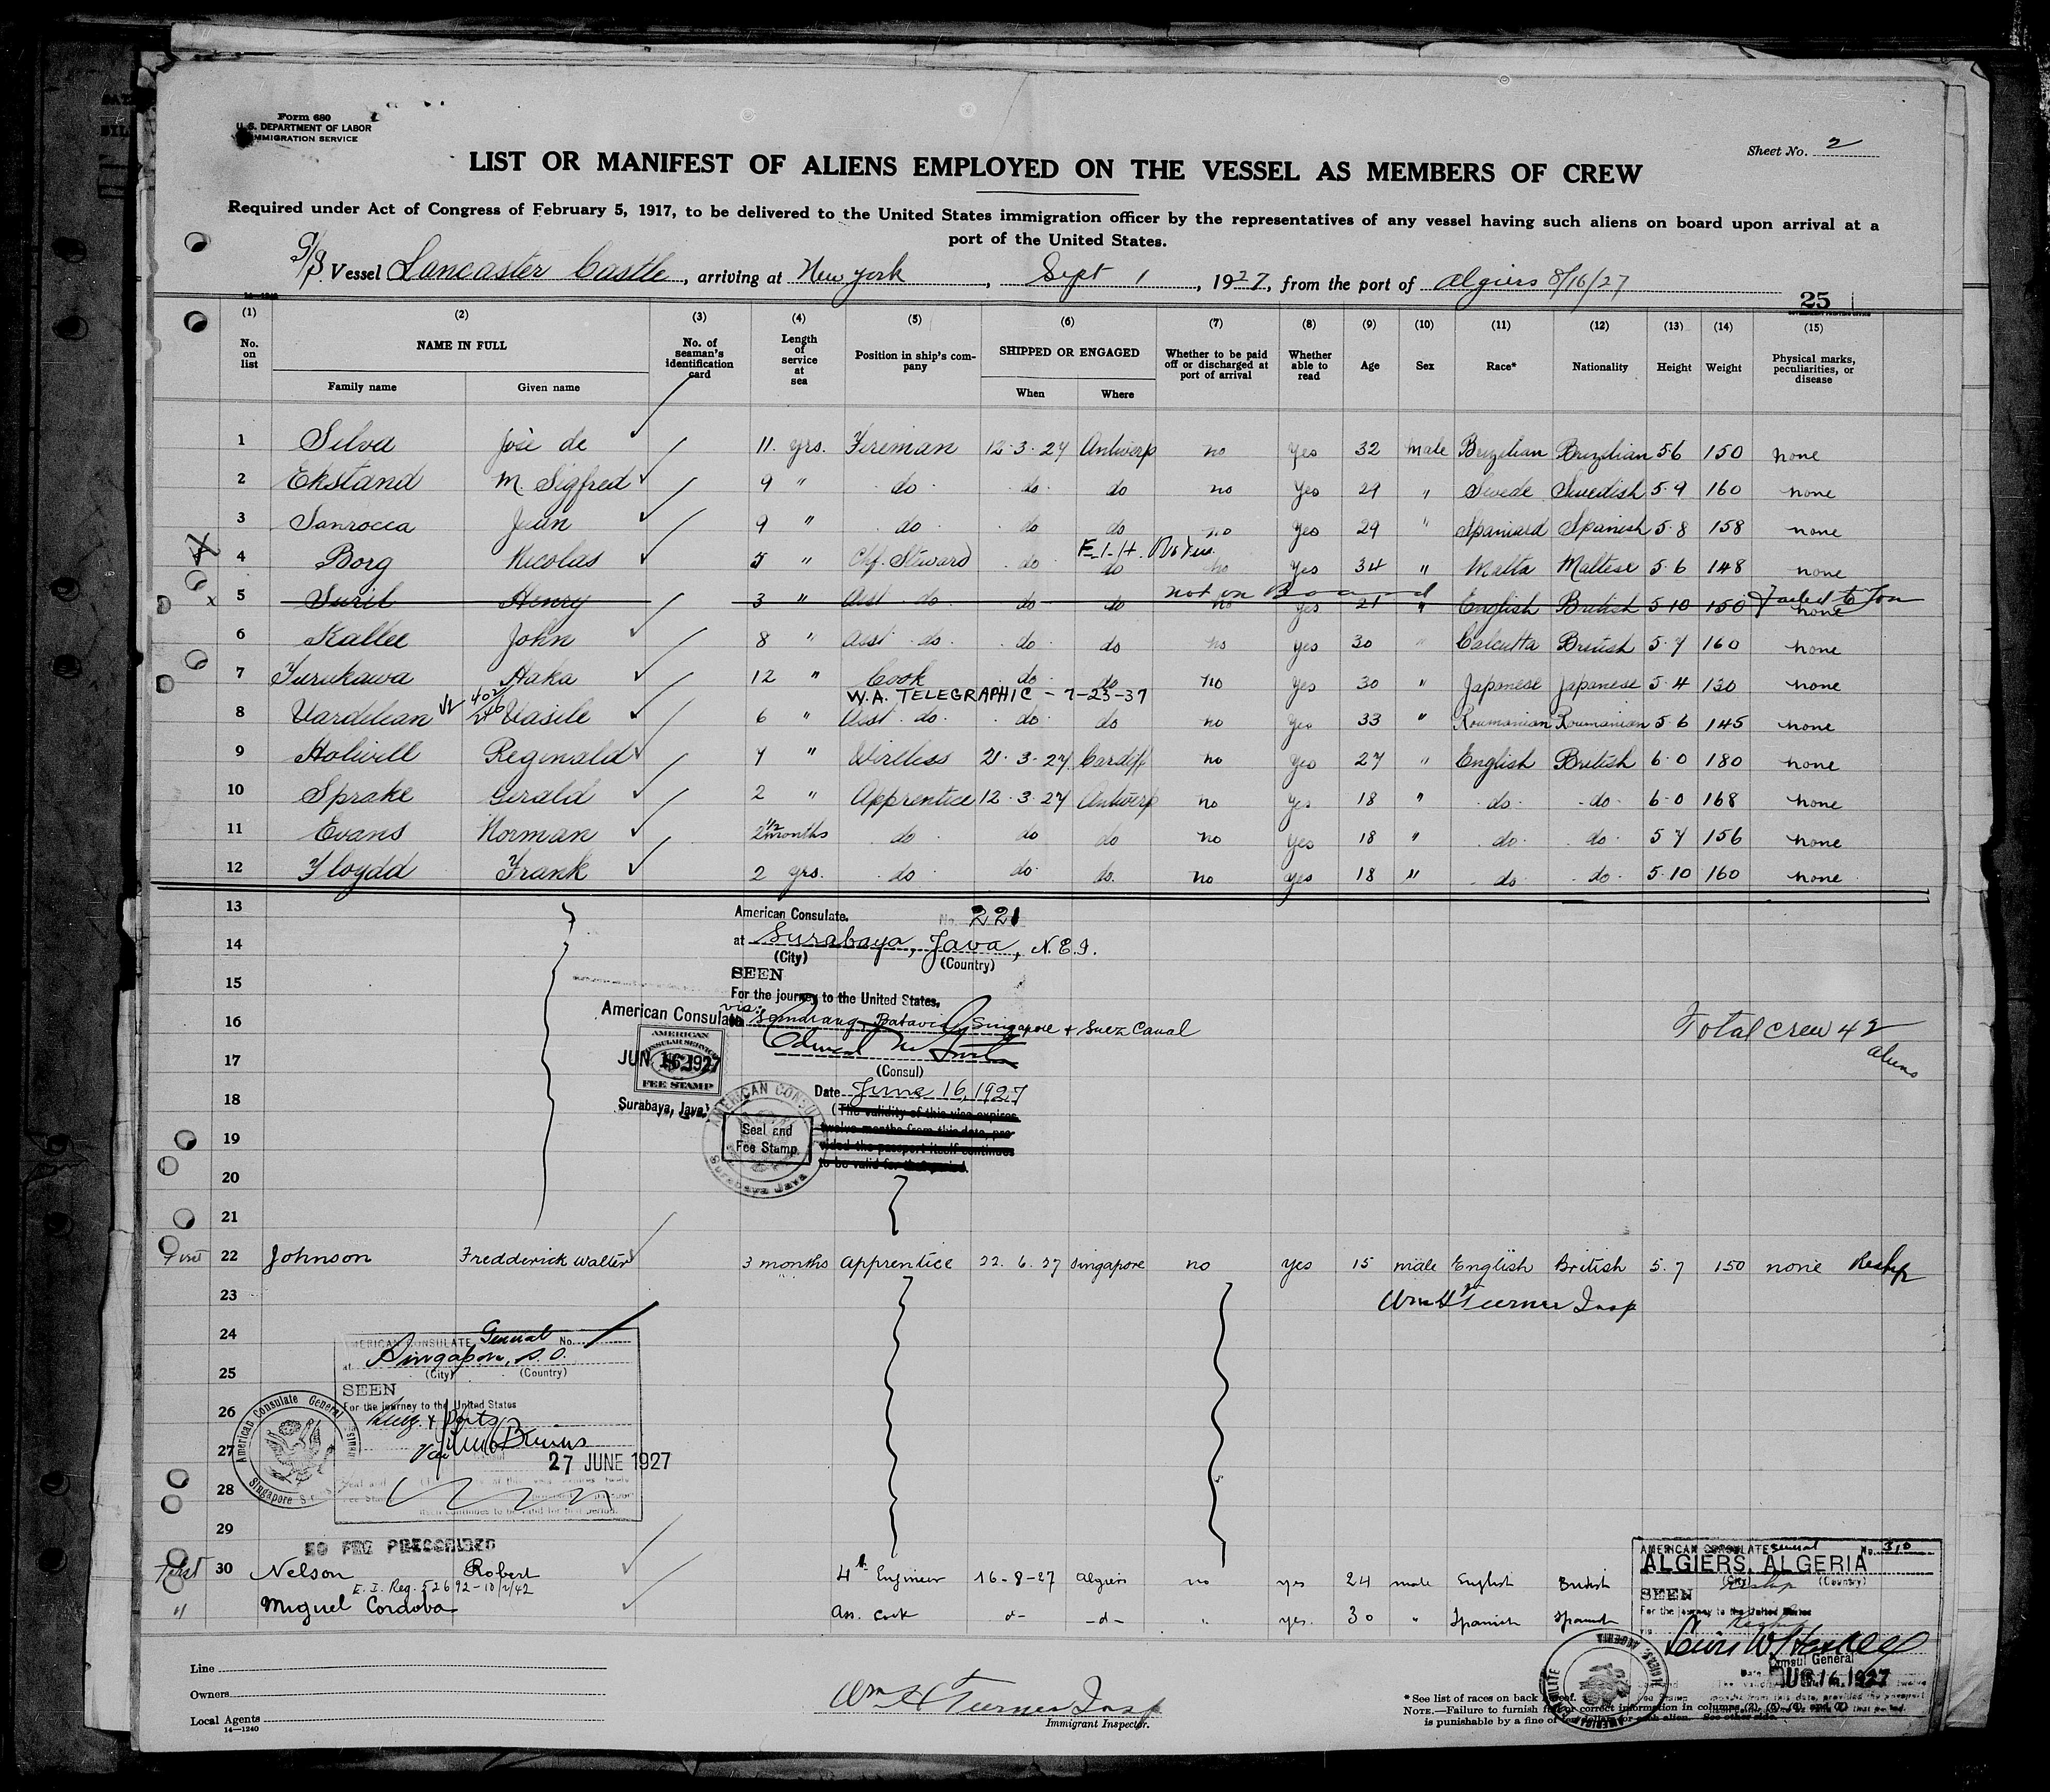 Form 680
U.S. DEPARTMENT OF LABOR
IMMIGRATION SERVICE
Sheet No. 2
LIST OR MANIFEST OF ALIENS EMPLOYED ON THE VESSEL AS MEMBERS OF CREW
Required under Act of Congress of February 5, 1917, to be delivered to the United States immigration officer by the representatives of any vessel having such aliens on board upon arrival at a
port of the United States.
S/S. Vessel Lancaster Castle, arriving at New York, Sept 1, 1927, from the port of Algiers 8/16/27
14—1240
25
(1) (2) (3) (4) (5) (6) (7) (8) (9) (10) (11) (12) (13) (14) (15)
No. on list NAME IN FULL No. of seaman's identification card Length of service at sea Position in ship's company SHIPPED OR ENGAGED Whether to be paid off or discharged at port of arrival Whether able to read Age Sex Race* Nationality Height Weight Physical marks, peculiarities, or disease
Family name Given name When Where
1 Silva José de 11 yrs. Fireman 12·3·27 Antwerp no Yes 32 male Brazilian Brazilian 5·6 150 none
2 Ekstand M. Sigfred 9 " do do do no Yes 29 " Swede Swedish 5·9 160 none
3 Sanrocca Juan 9 " do do do no Yes 29 " Spaniard Spanish 5·8 158 none
4 Borg Nicolas 5 " Chf. Steward do do no Yes 34 " Malta Maltese 5·6 148 none
not on Board Failed to Join
5 Henry 3 " Asst do do do no yes 21 " English British 5·10 150 none
6 Kallee John 8 " Asst do do do no yes 30 " Calcutta British 5·7 160 none
7 Furukawa Haka 12 " Cook do do no Yes 30 " Japanese Japanese 5·4 130 none
W.A. TELEGRAPHIC - 7-23-37
8 Vardelean Vasile 6 " Asst. do do do no yes 33 " Roumanian Roumanian 5·6 145 none
9 Holwill Reginald 7 " Wireless 21·3·27 Cardiff no yes 27 " English British 6·0 180 none
10 Sprake Gerald 2 " Apprentice 12·3·27 Antwerp no yes 18 " do do 6·0 168 none
11 Evans Norman 2½ months do do do no yes 18 " do do 5 7 156 none
12 Floydd Frank 2 yrs. do do do no yes 18 " do do 5·10 160 none
13
American Consulate. No. 221
14
at Surabaya, Java, N.E.I.
(City) (Country)
SEEN
15
For the journey to the United States.
American Consulate
16
via Samarang, Batavia, Singapore & Suez Canal
Total crew 42
aliens
AMERICAN CONSULAR SERVICE
JUN 16 1927
FEE STAMP
17
(Consul)
18
Date June 16, 1927
Surabaya, Java.
(The validity of this visa expires
twelve months from this date, pro-
vided the passport itself continues
to be valid for that period.
19
Seal and
Fee Stamp
AMERICAN CONSUL
Surabaya Java
20
21
First 22 Johnson Fredderick Walter 3 months Apprentice 22.6.27 Singapore no yes 15 male English British 5.7 150 none Reship
23
Wm H Turner Insp
24
AMERICAN CONSULATE General No.
at Singapore, S.S.
25
(City) (Country)
SEEN
26
For the journey to the United States
27
27 JUNE 1927
American Consulate General
Singapore S.S.
28
29
NO FEE PRESCRIBED
First 30 Nelson Robert 4th Engineer 16-8-27 Algiers no yes 24 male English British
E. I. Reg. 52692-10/2/42
" Miguel Cordova Ass. Cook d- -d- " yes. 30 " Spanish Spanish
AMERICAN CONSULATE General No. 310
ALGIERS, ALGERIA
(City) (Country)
SEEN
For the journey to the United States
Consul General
AUG 16 1927
Line
Owners
Local Agents
14—1240
Wm H Turner Insp
Immigrant Inspector.
* See list of races on back hereof.
NOTE.—Failure to furnish full or correct information in columns (3), (5), (6), and (7)
is punishable by a fine of ten dollars for each alien. See other side.